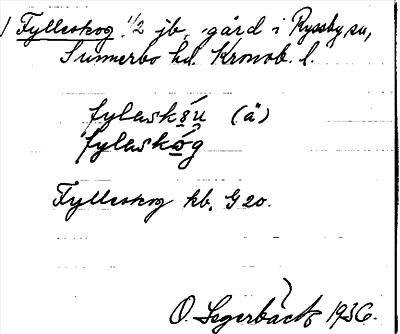 Fylleskog 1/2 jb, gård i Ryssby sn,
Sunnerbo hd. Kronob. l.
fylaskóu (ä)
fylaskóg
Fylleskog kb. G 20.
O. Segerbäck 1936.